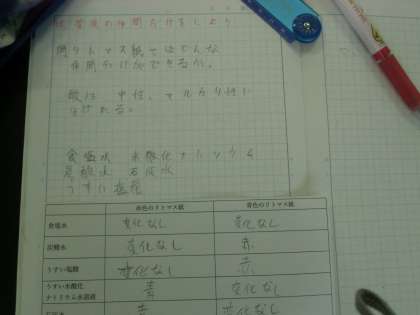 水溶液の仲間分けをしよう
問リトマス紙ではどんな
仲間分けができるか。
酸性 中性、アルカリ性に
分けれる。
食塩水 水酸化ナトリウム
炭酸水 石灰水
うすい塩酸
赤色のリトマス紙 青色のリトマス紙
食塩水 変化なし 変化なし
炭酸水 変化なし 赤
うすい塩酸 変化なし 赤
うすい水酸化
ナトリウム水溶液 青 変化なし
石灰水 青 変化なし